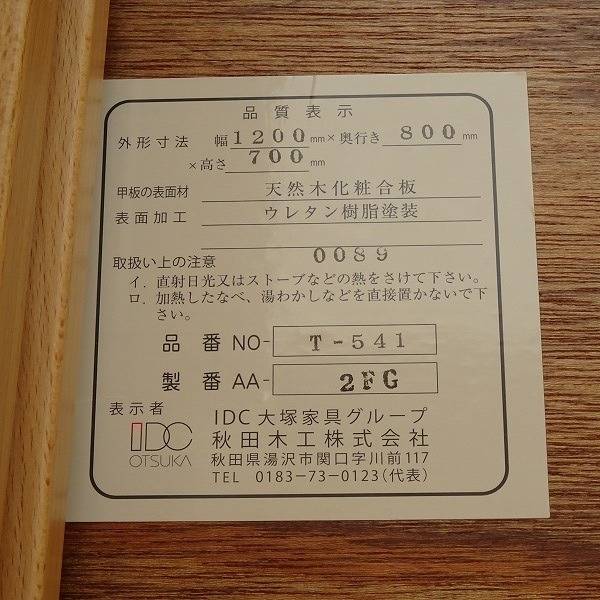 品質表示
外形寸法 幅1200mm×奥行き 800mm
×高さ 700 mm
甲板の表面材 天然木化粧合板
表面加工 ウレタン樹脂塗装
0089
取扱い上の注意
イ．直射日光又はストーブなどの熱をさけて下さい。
ロ．加熱したなべ、湯わかしなどを直接置かないで下
さい。
品番 NO- T-541
製番 AA- 2FG
表示者
IDC
OTSUKA
IDC 大塚家具グループ
秋田木工株式会社
秋田県湯沢市関口字川前117
TEL 0183-73-0123(代表)